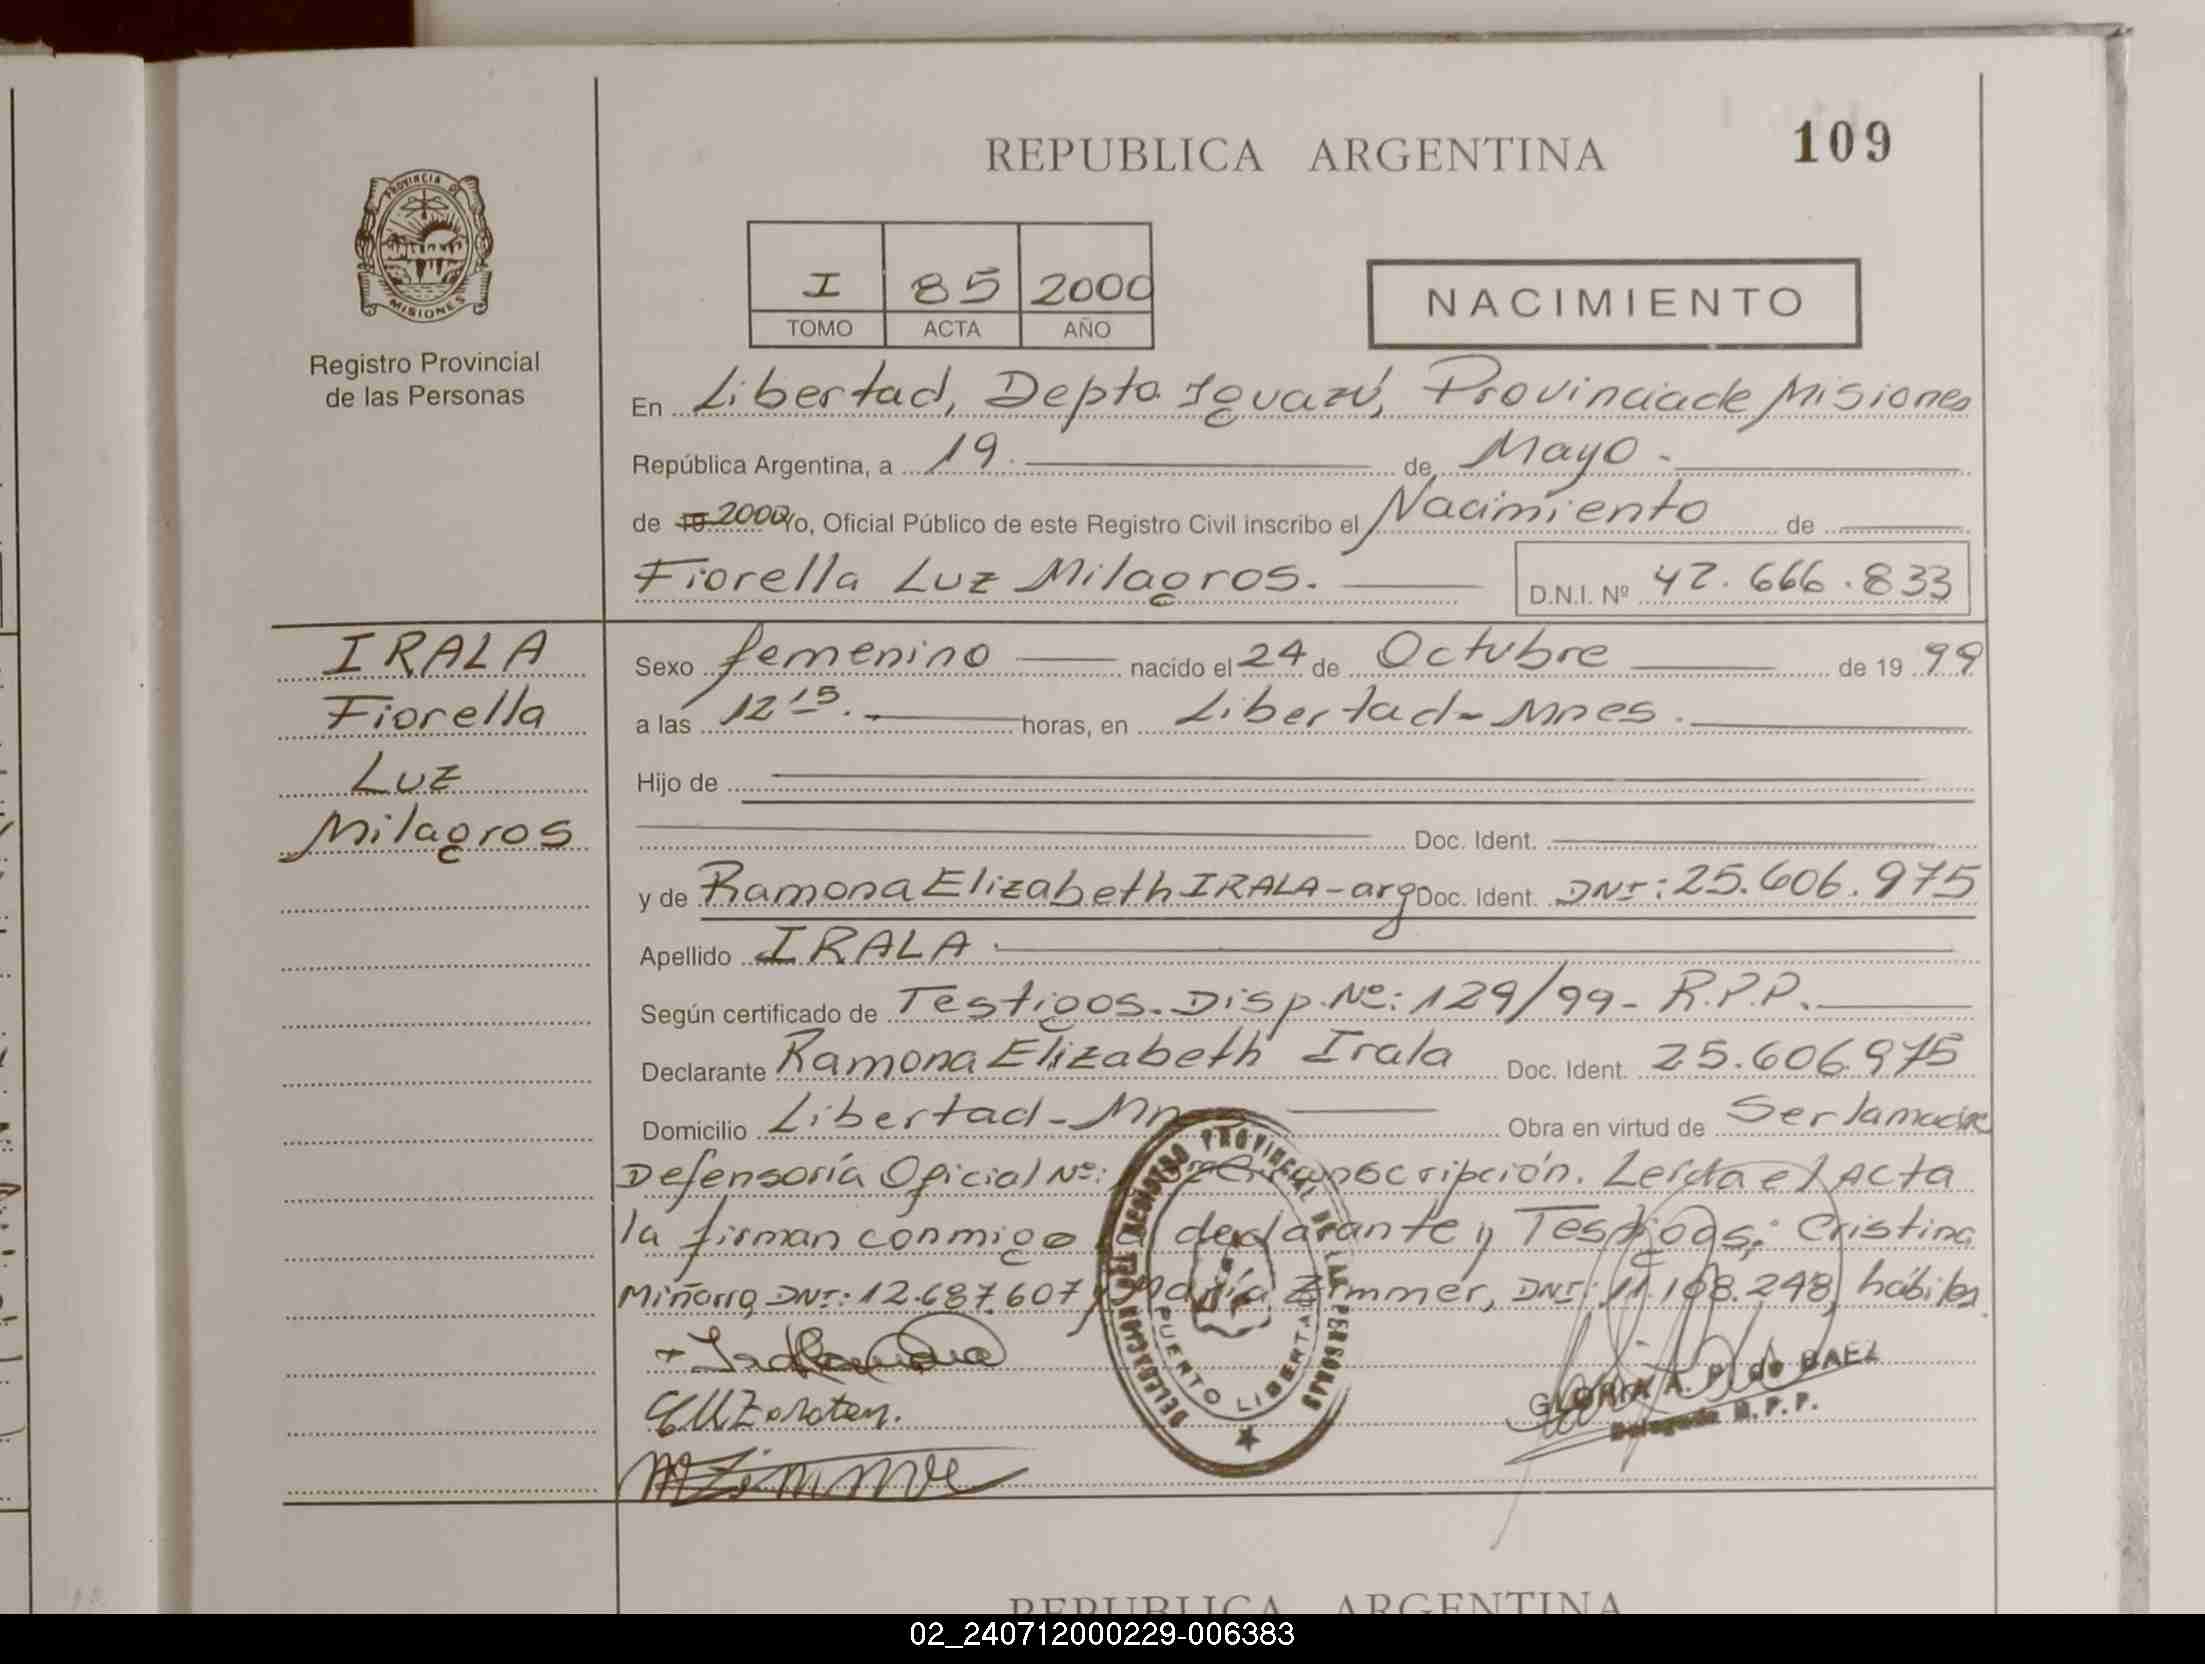 REPUBLICA ARGENTINA
109
PROVINCIA DE
MISIONES
Registro Provincial
de las Personas
I 85 2000
TOMO ACTA AÑO
NACIMIENTO
En Libertad, Depto. Iguazú, Provincia de Misiones
República Argentina, a 19. de Mayo.
de 19 2000 Yo, Oficial Público de este Registro Civil inscribo el Nacimiento de
Fiorella Luz Milagros. D.N.I. Nº 42.666.833
IRALA
Fiorella
Luz
Milagros
Sexo femenino nacido el 24 de Octubre de 19 99
a las 12 15. horas, en Libertad-Mnes.
Hijo de
Doc. Ident.
y de Ramona Elizabeth IRALA-arg Doc. Ident. DNI: 25.606.975
Apellido IRALA
Según certificado de Testigos. Disp. Nº: 129/99- R.P.P.
Declarante Ramona Elizabeth Irala Doc. Ident. 25.606.975
Domicilio Libertad-Mn Obra en virtud de Ser la madre
Defensoría Oficial Nº: transcripción. Leída el Acta
la firman conmigo declarante y Testigos: Cristina
DNI: 12.687.607 y María Zimmer, DNI: 11.108.248, hábiles.
DELEGACION DEL REGISTRO PROVINCIAL DE LAS PERSONAS
PUERTO LIBERTAD
GLORIA A. P. de BAEZ
Delegada R.P.P.
MZimmer
REPUBLICA ARGENTINA
02_240712000229-006383